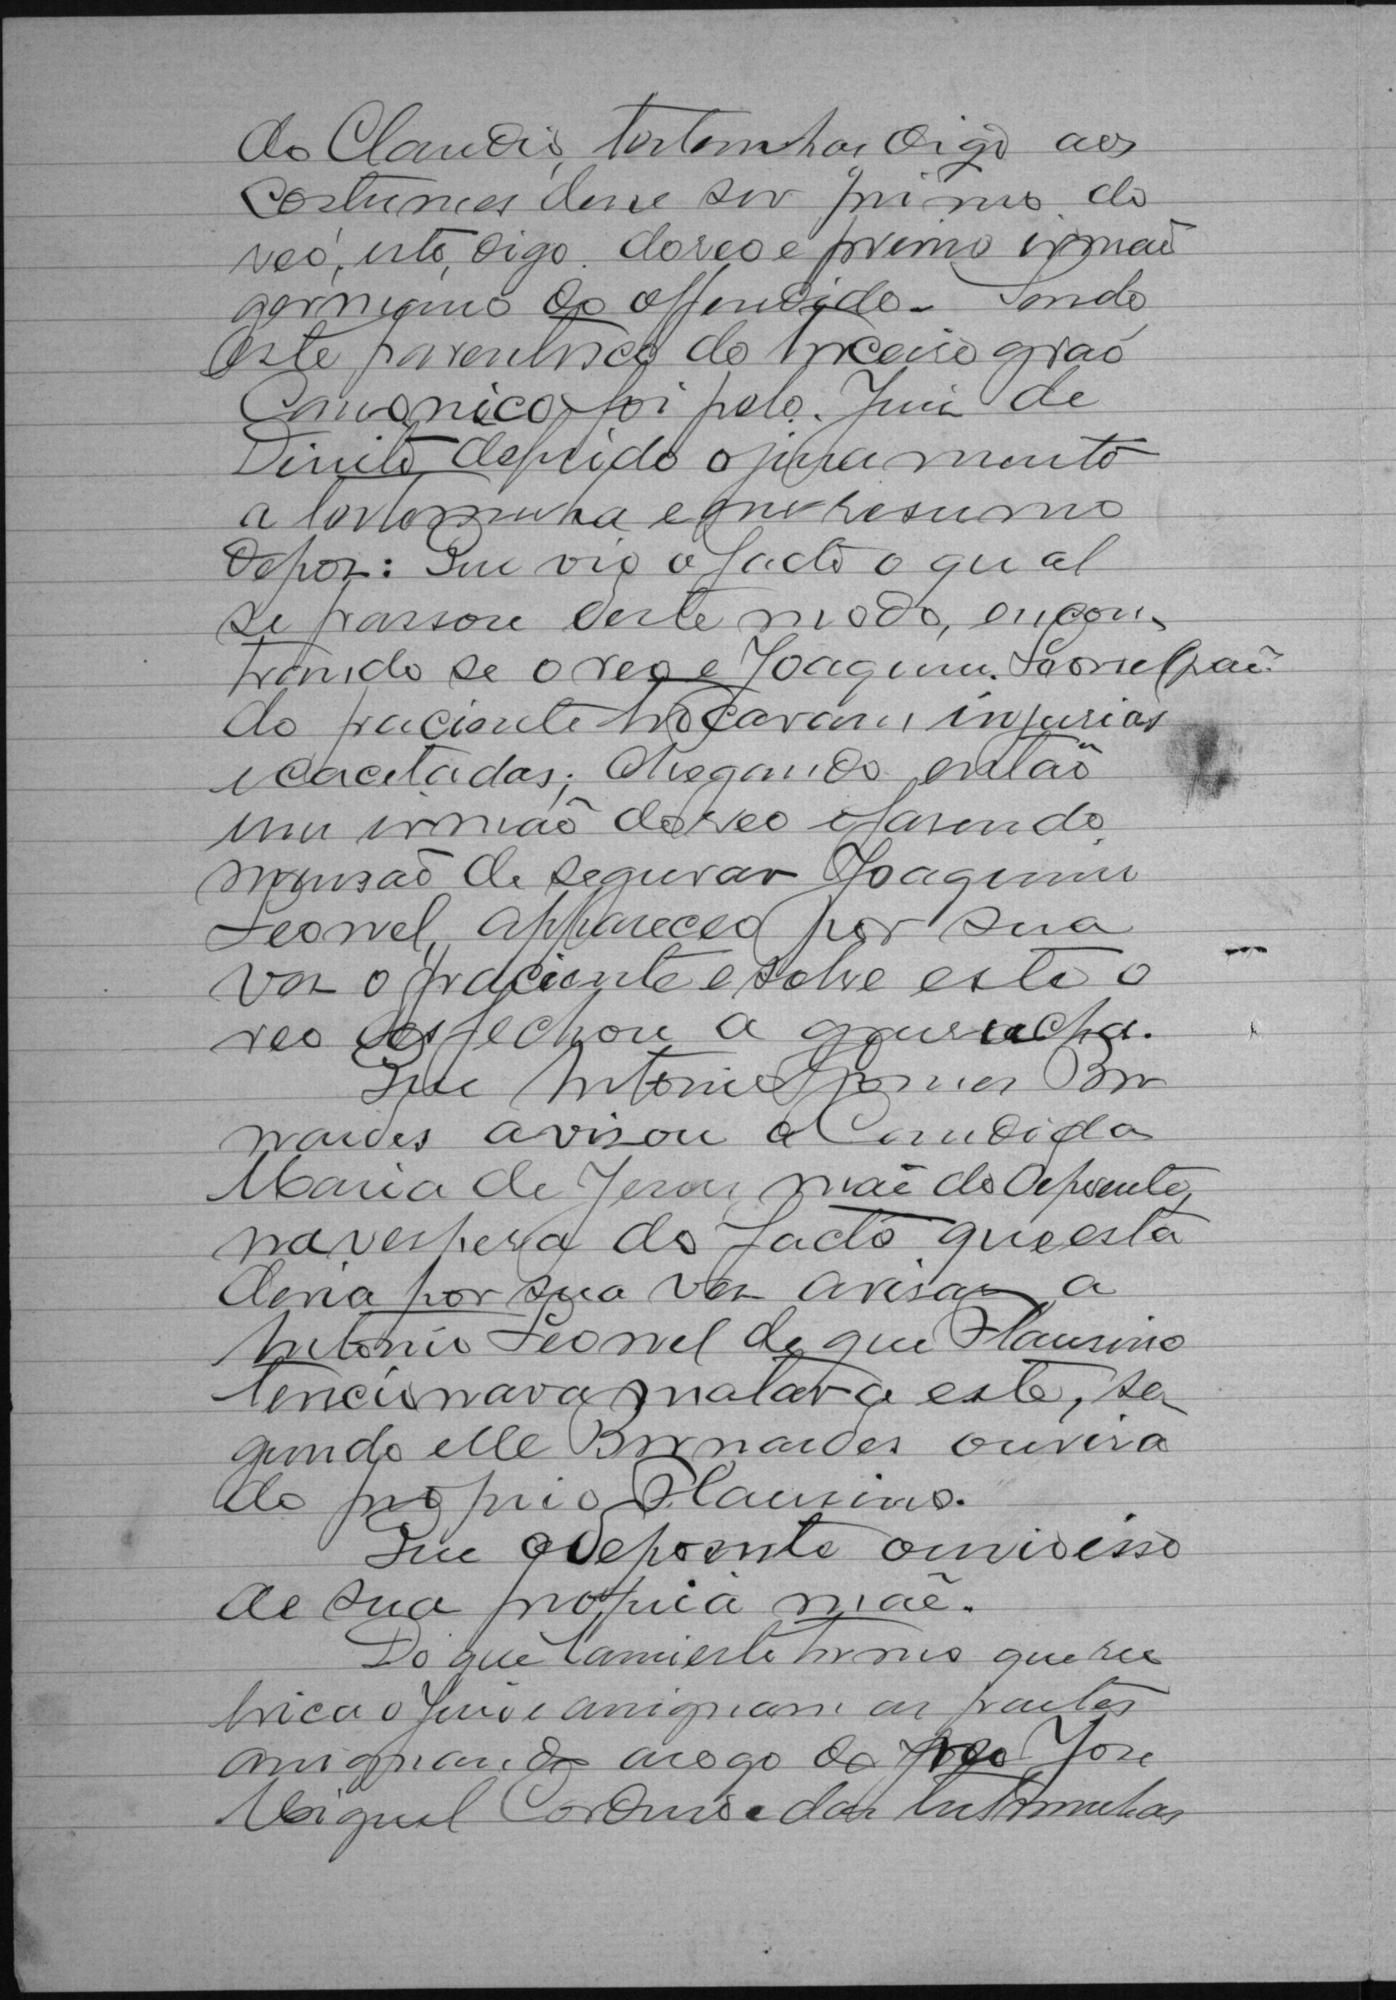 do Claudio, testemunha digo aos
costumes disse ser primo do
reo, isto, digo do reo e primo irmaõ
germano do offendido. Sendo
este parentesco do terceiro graõ
Canonico foi pelo Juiz de
Direito deferido o juramento
a testemunha e em resumo
depoz: Que vio o facto o qual
se passou deste modo, encon-
trando se o reo e Joaquim Leonel pae
do paciente trocavam injurias
e cacetadas; chegando então
um irmaõ do reo e fasendo
mensaõ de segurar Joaquim
Leonel, appareceo por sua
vez o paciente e sobre este o
reo desfechou a garrucha.
Que Antonio Gomes Ber
nardes avisou a Candida
Maria de Jesus, maẽ do depoente,
na vespera do facto que esta
devia por sua vez avisar a
Antonio Leonel de que Flausino
tencionava matar a este, se
gundo elle Bernardes ouvira
do proprio Flausino.
Que o depoente ouvio isso
de sua propria maẽ.
Do que lavrei este termo que ru
brica o Juiz e assignam as partes
assignando a rogo do reo José
Miguel Cordeiro e das testemunhas